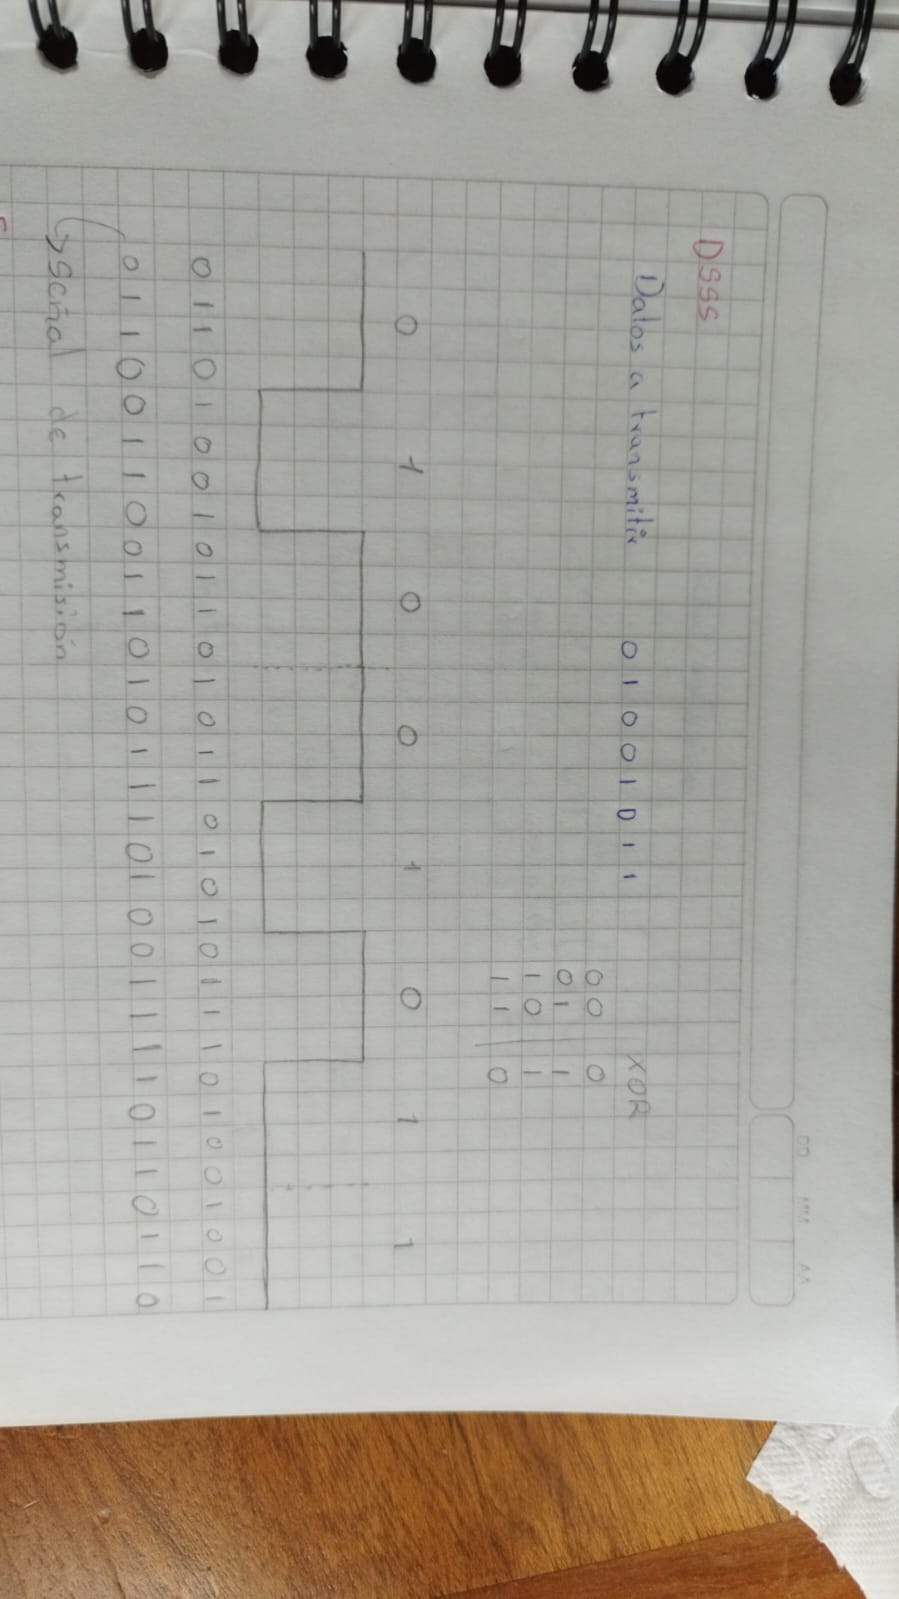 DD MM AA
DSSS
Datos a transmitir 0 1 0 0 1 0 1 1 XOR
0 0 0
0 1 1
1 0 1
1 1 0
0 1 0 0 1 0 1 1
0 1 1 0 1 0 0 1 0 1 1 0 1 0 1 1 0 1 0 1 0 1 1 1 0 1 0 0 1 0 0 1
0 1 1 0 0 1 1 0 0 1 1 0 1 0 1 1 1 0 1 0 0 1 1 1 1 0 1 1 0 1 1 0
Señal de transmisión